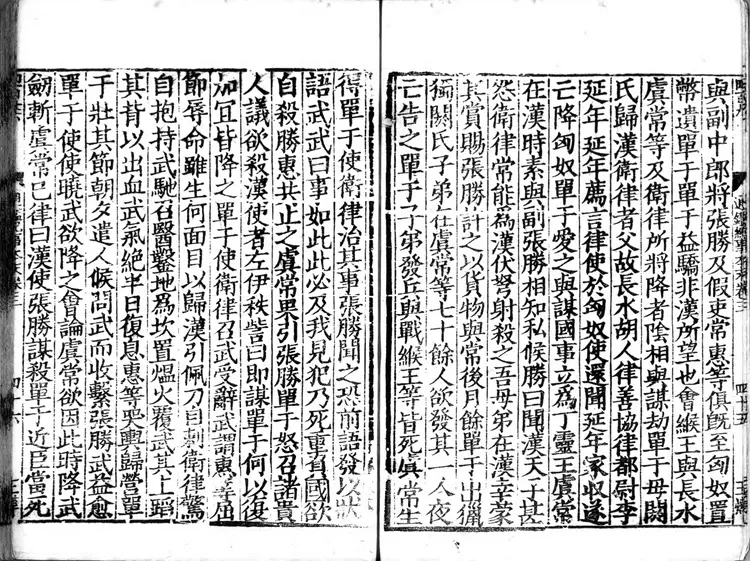 與副中郎將張勝及假吏常惠等俱旣至匈奴置
幣遺單于單于益驕非漢所望也會緱王與長水
虞常等及衛律所將降者陰相與謀劫單于母閼
氏歸漢衛律者父故長水胡人律善協律都尉李
延年延年薦言律使於匈奴使還聞延年家收遂
亡降匈奴單于愛之與謀國事立爲丁靈王虞常
在漢時素與副張勝相知私候勝曰聞漢天子甚
怨衛律常能爲漢伏弩射殺之吾母弟在漢幸蒙
其賞賜張勝許之以貨物與常後月餘單于出獵
獨閼氏子弟在虞常等七十餘人欲發其一人夜
亡告之單于子弟發兵與戰緱王等皆死虞常生
得單于使衛律治其事張勝聞之恐前語發以狀
語武武曰事如此此必及我見犯乃死重負國欲
自殺勝惠共止之虞常果引張勝單于怒召諸貴
人議欲殺漢使者左伊秩訾曰即謀單于何以復
加宜皆降之單于使衛律召武受辭武謂惠等屈
節辱命雖生何面目以歸漢引佩刀自刺衛律驚
自抱持武馳召醫鑿地爲坎置熅火覆武其上蹈
其背以出血武氣絶半日復息惠等哭輿歸營單
于壯其節朝夕遣人候問武而收繫張勝武益愈
單于使使曉武欲降之會論虞常欲因此時降武
劒斬虞常已律曰漢使張勝謀殺單于近臣當死